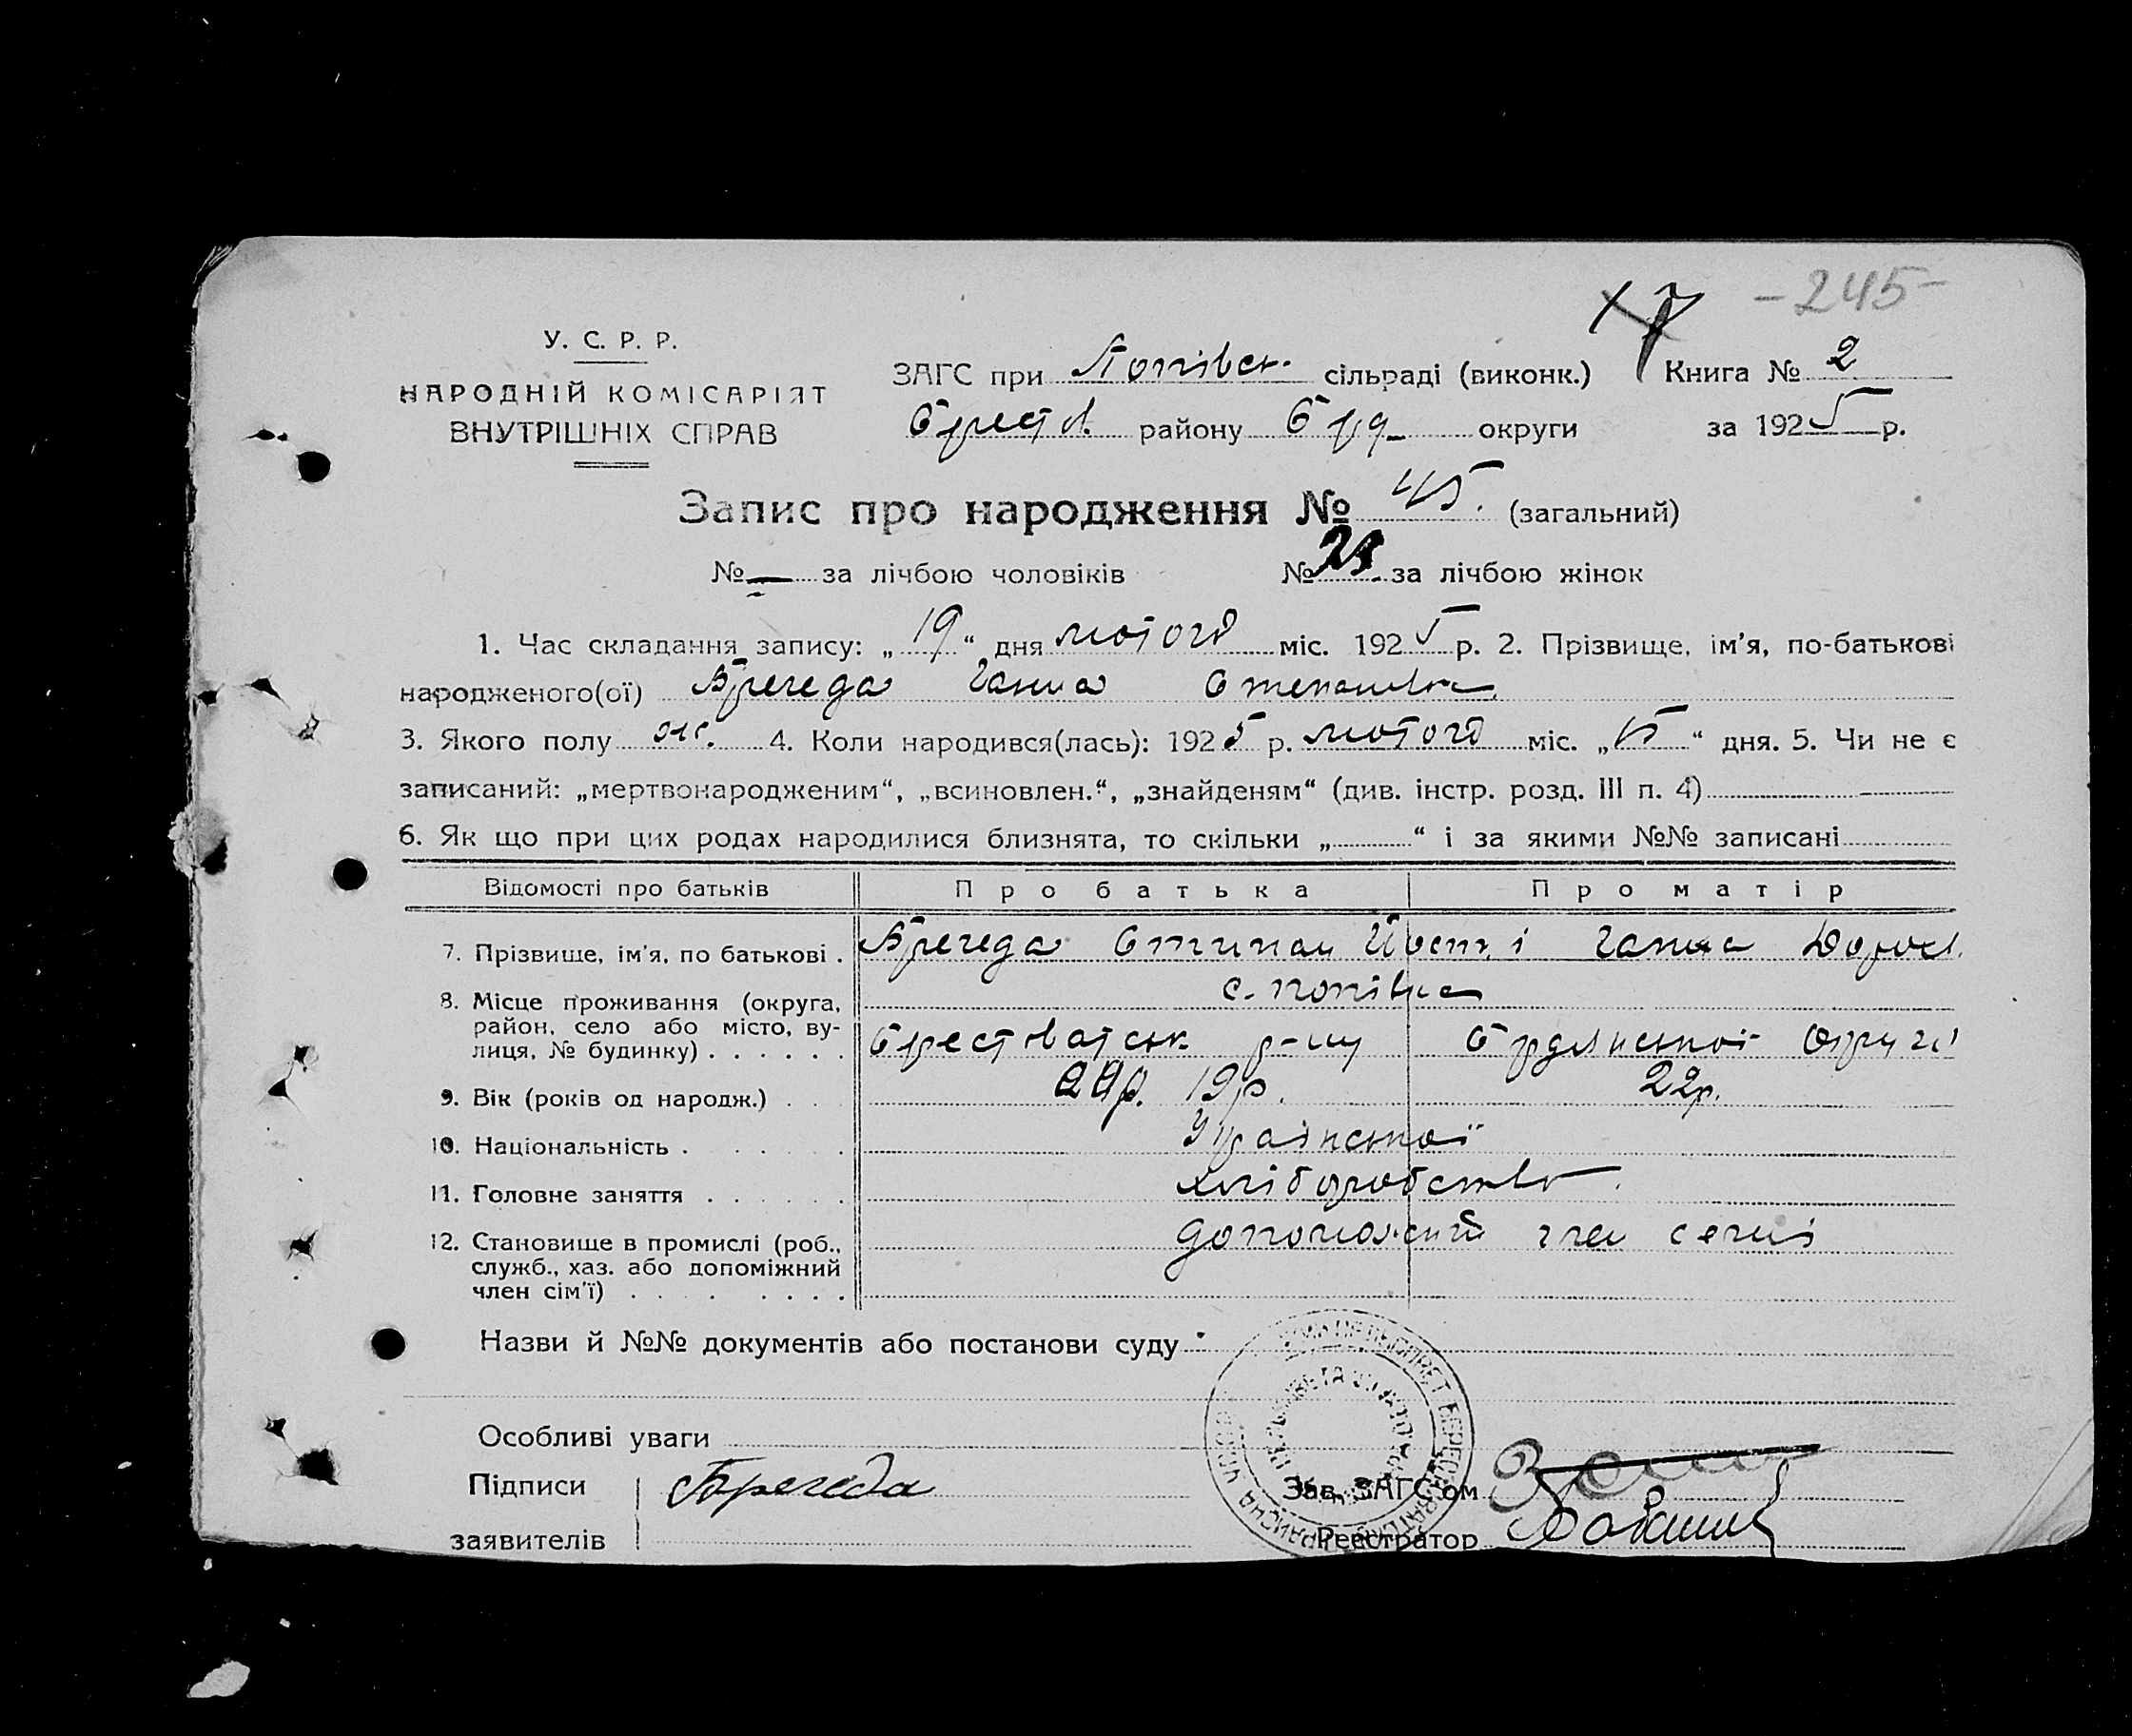 -245-
7
У. С. Р. Р.
НАРОДНІЙ КОМІСАРІЯТ
ВНУТРІШНІХ СПРАВ
ЗАГС при Попівск. сільраді (виконк.) Книга № 2
Брестов. району Брд. округи за 1925 р.
Запис про народження № 45. (загальний)
№ — за лічбою чоловіків № за лічбою жінок
1. Час складання запису: „19“ дня лютого міс. 1925 р. 2. Прізвище, ім'я, по-батькові
народженого(ої) Брегеда Ганна Степановна.
3. Якого полу ж. 4. Коли народився(лась): 1925 р. лютого міс. „15“ дня. 5. Чи не є
записаний: „мертвонародженим“, „всиновлен.“, „знайденям“ (див. інстр. розд. III п. 4)
6. Як що при цих родах народилися близнята, то скільки „ “ і за якими №№ записані
Відомості про батьків Про батька Про матір
7. Прізвище, ім'я, по батькові . Брегеда Стипан і Ганна
8. Місце проживання (округа, с. Попівка
район, село або місто, ву-
лиця, № будинку) . . . . . . Брестоватськ р-ну Бердянської округи
9. Вік (років од народж.) . 19р. 22р.
10. Національність . Української
11. Головне заняття . хліборобство.
12. Становище в промислі (роб., допоможний член семьї
служб., хаз. або допоміжний
член сім'ї) . . . . . . . .
Назви й №№ документів або постанови суду
Особливі уваги
Підписи Брегеда Зав. ЗАГС'ом
заявителів Реєстратор